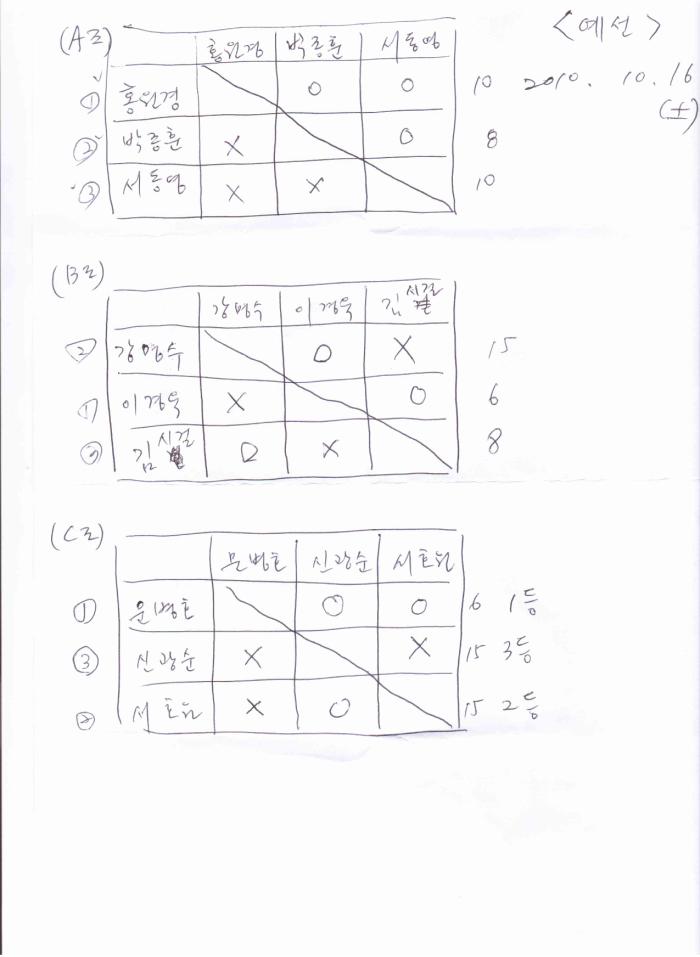 <예선>
(A조)
홍원경 박종훈 서동영
① 홍원경 O O 10 2010. 10. 16
(土)
② 박종훈 X O 8
③ 서동영 X X 10
(B조)
강명수 이경욱 김시걸
② 강명수 O X 15
① 이경욱 X O 6
③ 김시걸 O X 8
(C조)
문병호 신광순 서호원
① 문병호 O O 6 1등
③ 신광순 X X 15 3등
② 서호원 X O 15 2등